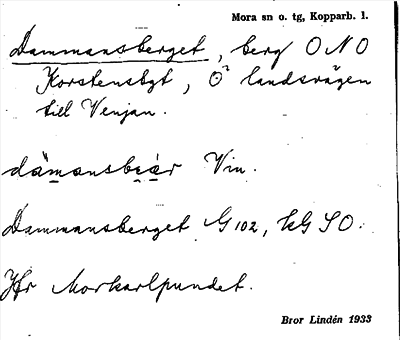 Mora sn o. tg, Kopparb. l.
Dammansberget, berg ONO
Korstensbgt, Ö landsvägen
till Venjan.
dàmansbæ̀r Vin.
Dammansberget G 102, kG SO.
Jfr Morkarlpundet.
Bror Lindén 1933